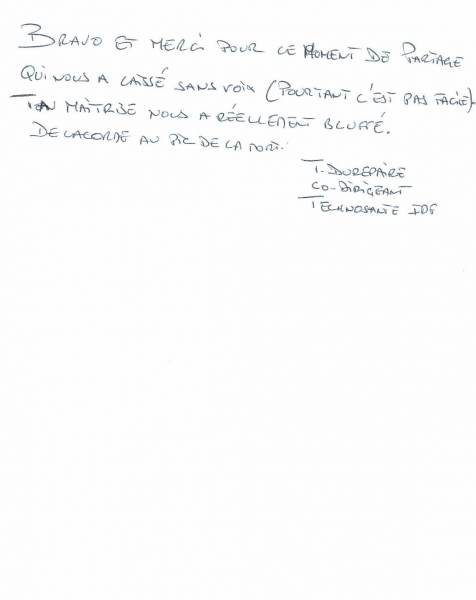 BRAVO ET MERCI POUR CE MOMENT DE PARTAGE
QUI NOUS A LAISSÉ SANS VOIX (POURTANT C'EST PAS FACILE)
TA MAÎTRISE NOUS A RÉELLEMENT BLUFFÉ.
DE LA CORDE AU PIC DE LA MORT.
T. DUREPAIRE
CO-DIRIGEANT
TECHNOSANTE IDF